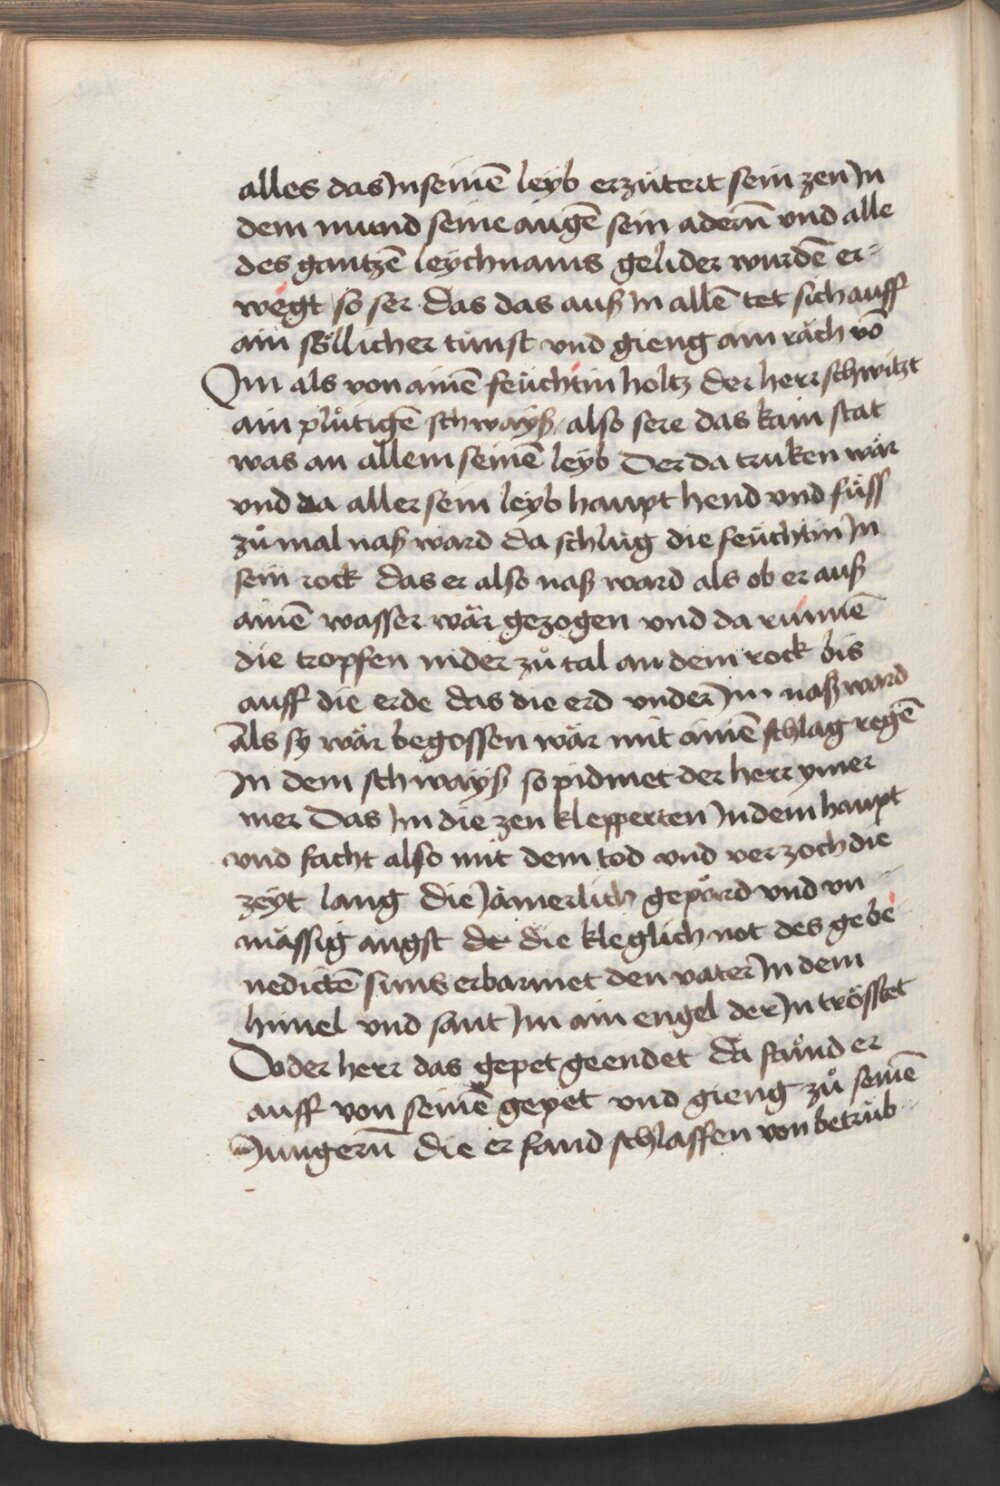 alles das Jn seinē leyb erzitert sein zen Jn
dem mund seine augē sein adern̄ vnd alle
des gantzē leychnams gelider wurdē er-
wegt so ser das das auß Jn allē tet sich auff
ain söllicher tunst vnd gieng am räch vō
Jm als von ainē feüchtin holtz der herr schwitzt
ain plůtigē schwayß / also sere das kain stat
was an allem seinē leyb Der da truken wär
vnd da aller sein leyb haupt hend vnd füss
zů mal naß ward da schlůg die feüchtin Jn
sein rock das er also naß ward als ob er auß
ainē wasser wär gezogen vnd da runnē
die tropfen nider zů tal an dem rock bis
auff die erde das die erd vnder Jm naß ward
als sy wär begossen wär mit ainē schlag regē
Jn dem schwayß so pidmet der herr ymer
mer Das Jm die zen klepperten Jn dem haupt
vnd facht also mit dem tod vnd verzoch die
zeyt lang die Jämerlich gepärd vnd vn-
mässig angst der die kleglich not des gebe
nedictē suns erbarmet den vater Jn dem
himel vnd sant Jm ain engel der Jn trösstet
Do der herr das gepet geendet da stůnd er
auff von seinē gepet vnd gieng zů seinē
Jungern̄ die er fand schlaffen von betrüb-